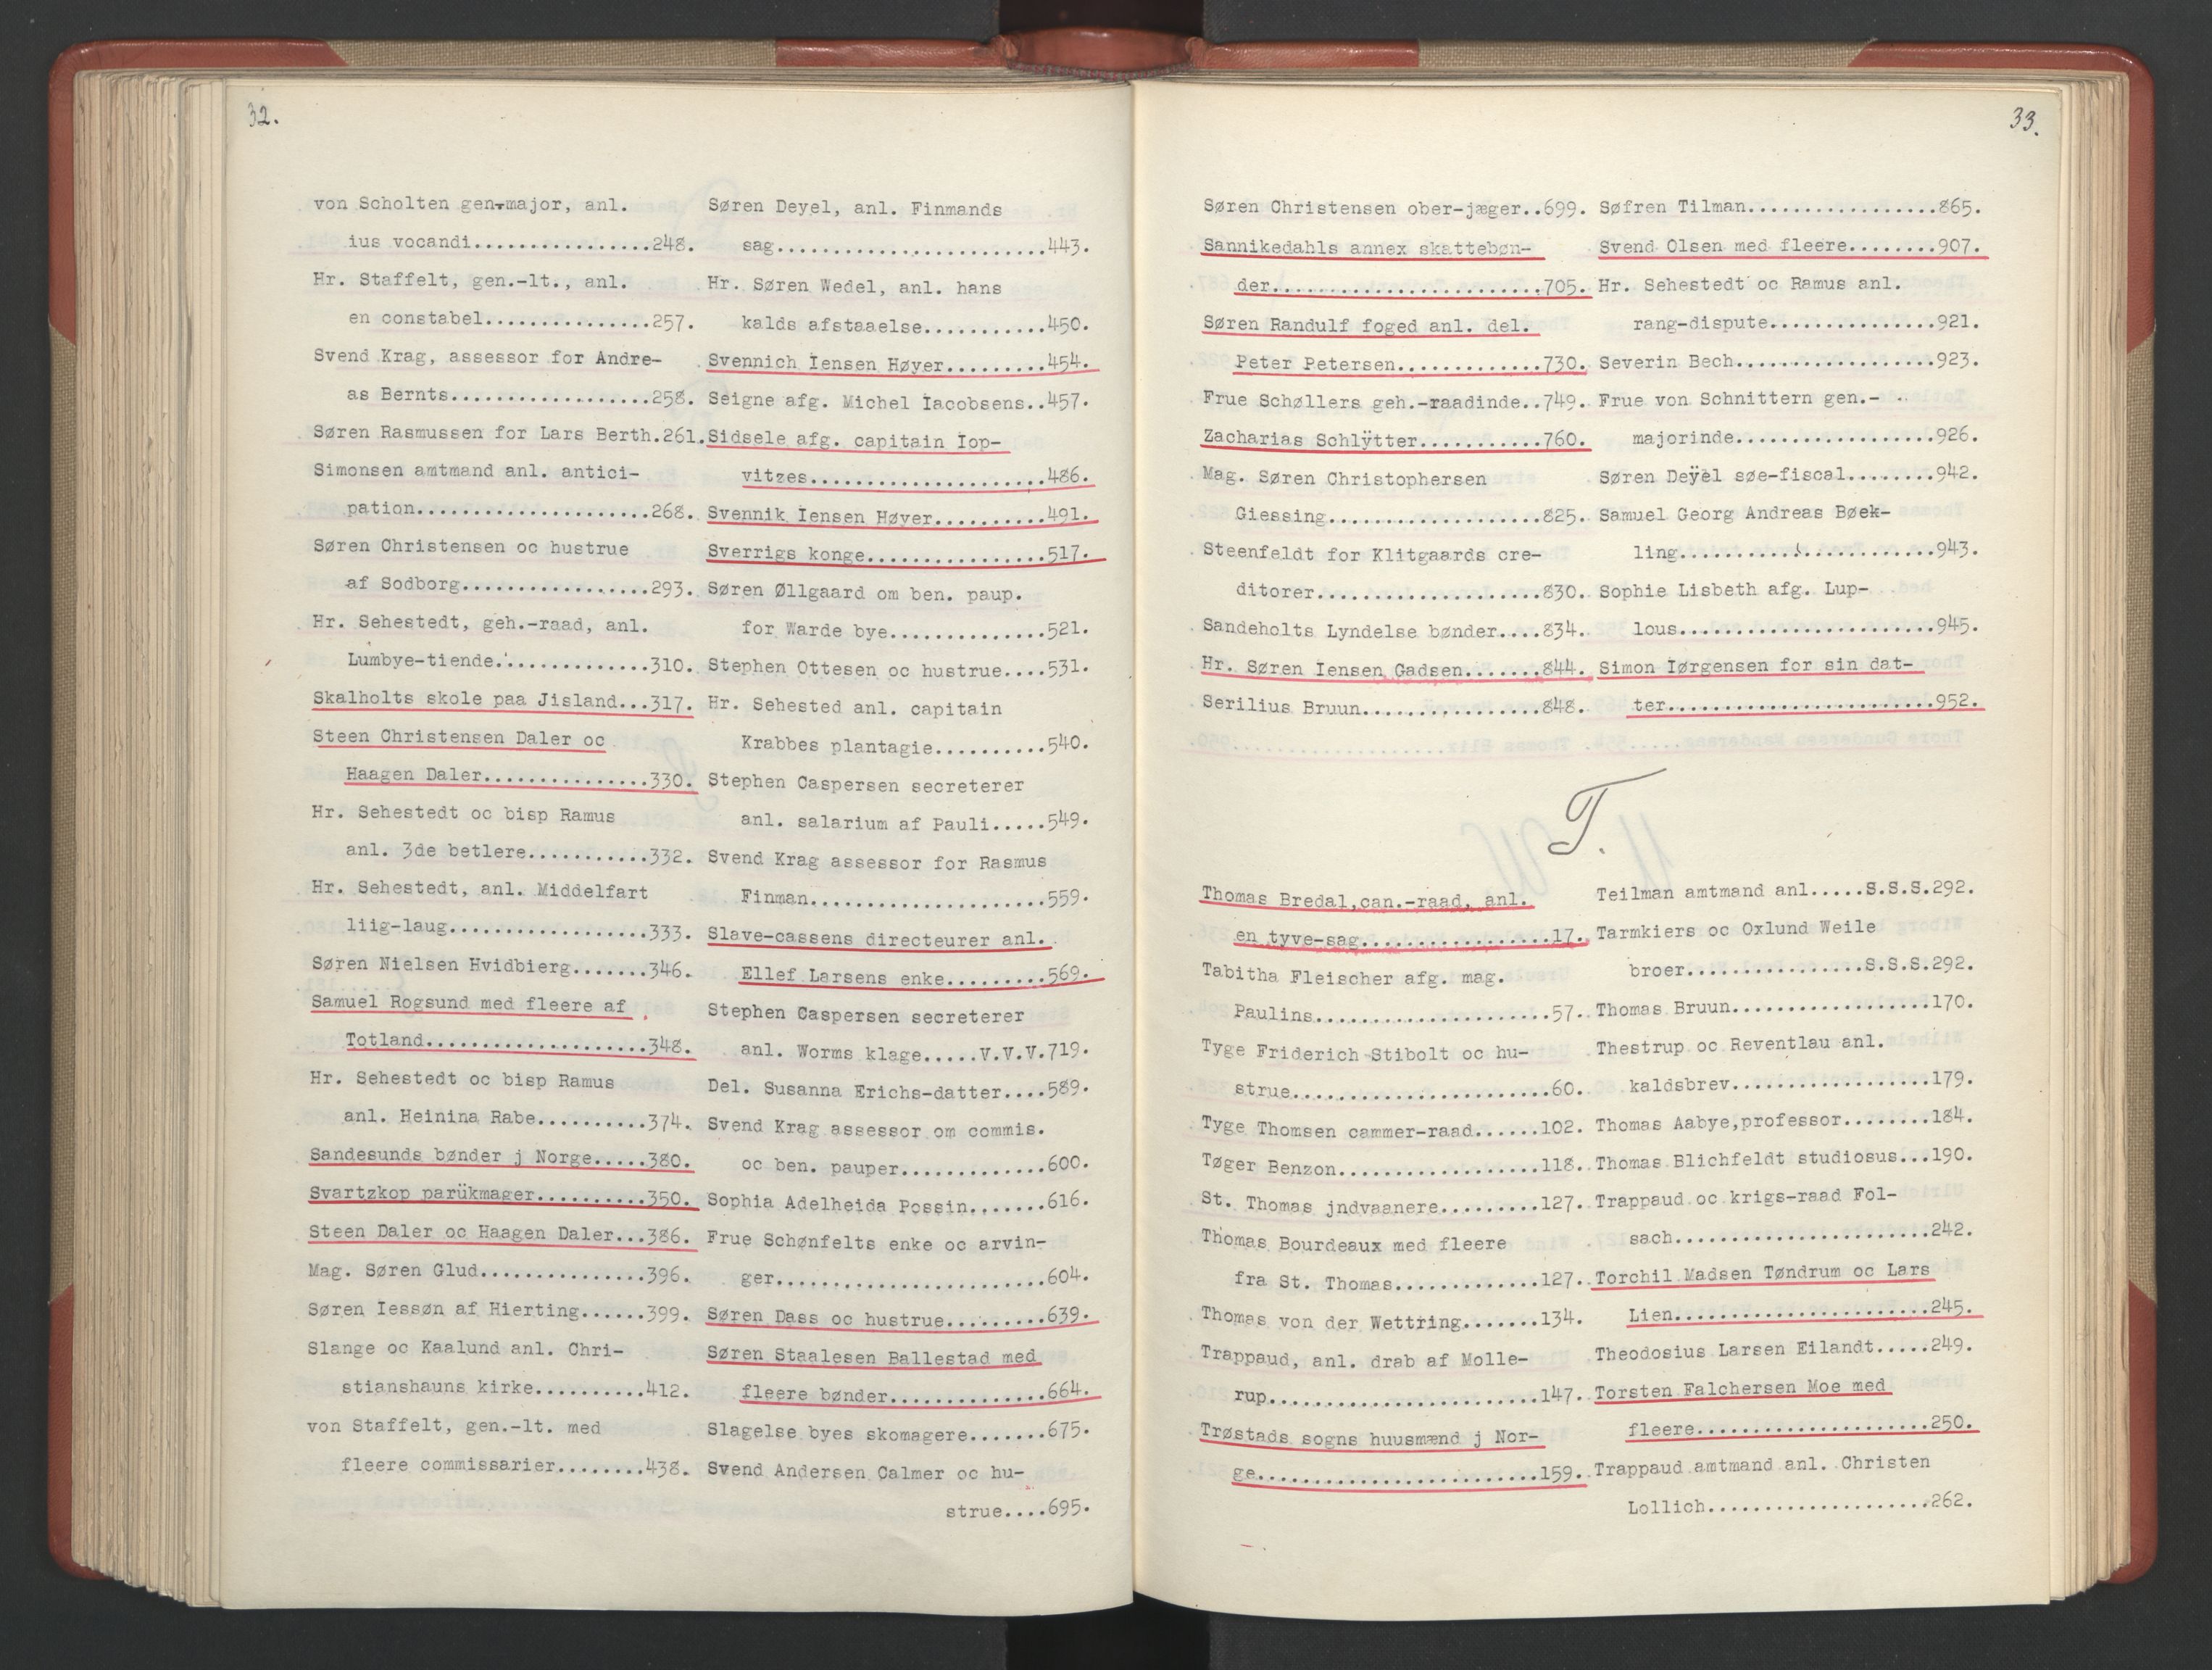 32.
von Scholten gen-major, anl.
ius vocandi.................248.
Hr. Staffelt, gen.-lt., anl.
en constabel................257.
Svend Krag, assessor for Andre-
as Bernts...................258.
Søren Rasmussen for Lars Berth.261.
Simonsen amtmand anl. antici-
pation......................268.
Søren Christensen oc hustrue
af Sodborg..................293.
Hr. Sehestedt, geh.-raad, anl.
Lumbye-tiende...............310.
Skalholts skole paa Jisland...317.
Steen Christensen Daler oc
Haagen Daler................330.
Hr. Sehestedt oc bisp Ramus
anl. 3de betlere............332.
Hr. Sehestedt, anl. Middelfart
liig-laug...................333.
Søren Nielsen Hvidbierg.......346.
Samuel Rogsund med fleere af
Totland.....................348.
Hr. Sehestedt oc bisp Ramus
anl. Heinina Rabe...........374.
Sandesunds bønder j Norge.....380.
Svartzkop parükmager..........350.
Steen Daler oc Haagen Daler...386.
Mag. Søren Glud...............396.
Søren Iessøn af Hierting......399.
Slange oc Kaalund anl. Chri-
stianshauns kirke...........412.
von Staffelt, gen.-lt. med
fleere commissarier.........438.
Søren Deyel, anl. Finmands
sag.........................443.
Hr. Søren Wedel, anl. hans
kalds afstaaelse............450.
Svennich Iensen Høyer.........454.
Seigne afg. Michel Iacobsens..457.
Sidsele afg. capitain Iop-
vitzes......................486.
Svennik Iensen Høyer..........491.
Sverrigs konge................517.
Søren Øllgaard om ben. paup.
for Warde bye...............521.
Stephen Ottesen oc hustrue....531.
Hr. Sehested anl. capitain
Krabbes plantagie...........540.
Stephen Caspersen secreterer
anl. salarium af Pauli.....549.
Svend Krag assessor for Rasmus
Finman......................559.
Slave-cassens directeurer anl.
Ellef Larsens enke..........569.
Stephen Caspersen secreterer
anl. Worms klage.....V.V.V.719.
Del. Susanna Erichs-datter....589.
Svend Krag assessor om commis.
oc ben. pauper..............600.
Sophia Adelheida Possin.......616.
Frue Schønfelts enke oc arvin-
ger.........................604.
Søren Dass oc hustrue.........639.
Søren Staalesen Ballestad med
fleere bønder...............664.
Slagelse byes skomagere.......675.
Svend Andersen Calmer oc hu-
strue....695.
33.
Søren Christensen ober-jæger..699.
Sannikedahls annex skattebøn-
der.........................705.
Søren Randulf foged anl. del.
Peter Petersen..............730.
Frue Schøllers geh.-raadinde..749.
Zacharias Schlÿtter...........760.
Mag. Søren Christophersen
Giessing....................825.
Steenfeldt for Klitgaards cre-
ditorer.....................830.
Sandeholts Lyndelse bønder....834.
Hr. Søren Iensen Gadsen.......844.
Serilius Bruun................848.
Søfren Tilman.................865.
Svend Olsen med fleere........907.
Hr. Sehestedt oc Ramus anl.
rang-dispute................921.
Severin Bech..................923.
Frue von Schnittern gen.-
majorinde...................926.
Søren Deÿel søe-fiscal........942.
Samuel Georg Andreas Bøek-
ling........................943.
Sophie Lisbeth afg. Lup-
lous........................945.
Simon Iørgensen for sin dat-
ter.........................952.
T.
Thomas Bredal,can.-raad, anl.
en tyve-sag..................17.
Tabitha Fleischer afg. mag.
Paulins......................57.
Tyge Friderich Stibolt oc hu-
strue........................60.
Tyge Thomsen cammer-raad......102.
Tøger Benzon..................118.
St. Thomas jndvaanere.........127.
Thomas Bourdeaux med fleere
fra St. Thomas..............127.
Thomas von der Wettring.......134.
Trappaud, anl. drab af Molle-
rup.........................147.
Trøstads sogns huusmænd j Nor-
ge..........................159.
Teilman amtmand anl.....S.S.S.292.
Tarmkiers oc Oxlund Weile
broer................S.S.S.292.
Thomas Bruun..................170.
Thestrup oc Reventlau anl.
kaldsbrev...................179.
Thomas Aabye,professor........184.
Thomas Blichfeldt studiosus...190.
Trappaud oc krigs-raad Fol-
sach........................242.
Torchil Madsen Tøndrum oc Lars
Lien........................245.
Theodosius Larsen Eilandt.....249.
Torsten Falchersen Moe med
fleere......................250.
Trappaud amtmand anl. Christen
Lollich.....................262.